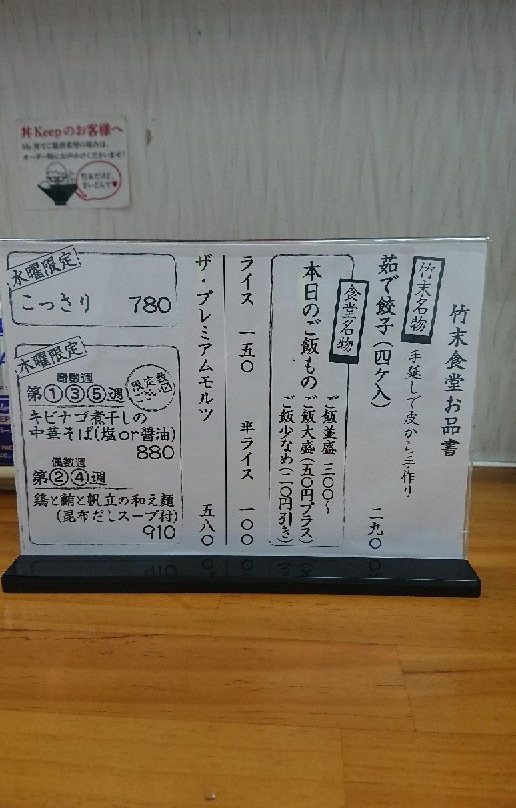 丼Keepのお客様へ
オーダー時にお声かけくださいませ!
竹末食堂お品書
竹末名物
手延しで皮から手作り
茹で餃子(四ケ入)
二九〇
食堂名物
本日のご飯もの
ご飯並盛 三〇〇~
ご飯大盛(五〇円プラス)
ご飯少なめ(二〇円引き)
ライス 一五〇
半ライス 一〇〇
ザ・プレミアムモルツ
五八〇
水曜限定
こっさり 780
木曜限定
奇数週
第①③⑤週
限定数
キビナゴ煮干しの
中華そば(塩or醤油)
880
偶数週
第②④週
鶏と鮪と帆立の和え麺
(昆布だしスープ付)
910